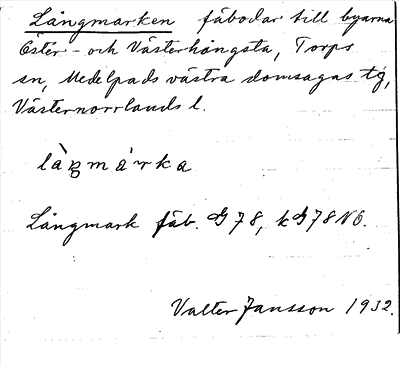 Långmarken fäbodar till byarna
Öster- och Västerhångsta, Torps
sn, Medelpads västra domsagas tg,
Västernorrlands l.
Långmark fäb. G 78, k G 78 NÖ.
Valter Jansson 1932.